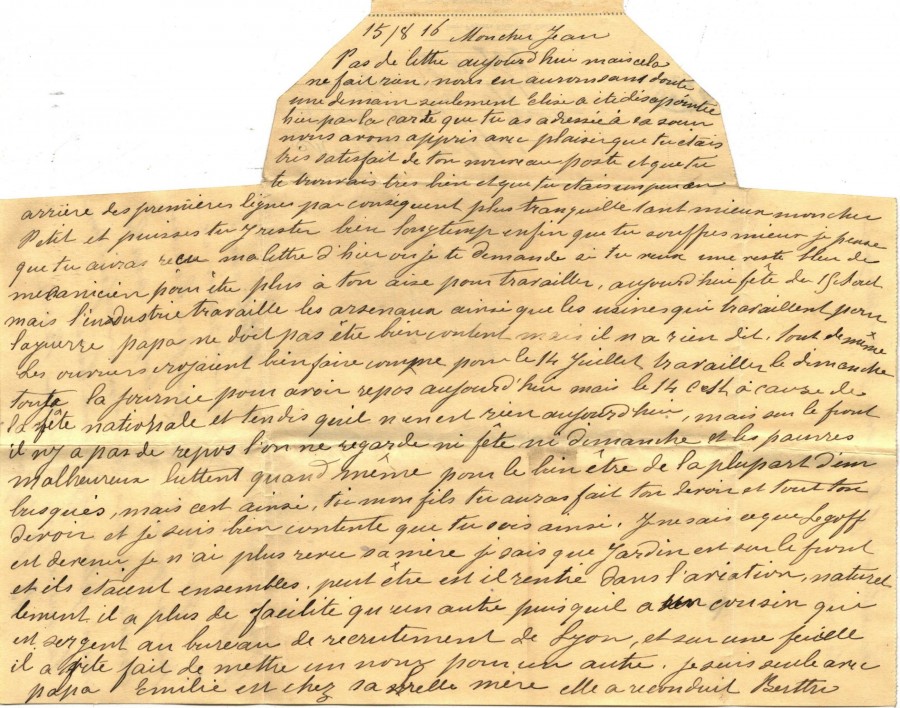 15/8 16 Moncher Jean
Pas de lettre aujourd'hui mais cela
ne fait rien, nous en aurons sans doute
une demain seulement Elise a été désapointée
hier par la carte que tu as adressée à sa soeur
nous avons appris avec plaisir que tu étais
très satisfait de ton nouveau poste et que tu
te trouvais très bien et que tu étais un peu en
arrière des premières lignes par conséquent plus tranquille tant mieux mon cher
Petit et puisses tu y rester bien longtemp enfin que tu souffres mieux je pense
que tu auras reçu ma lettre d'hier où je te demande si tu veux une veste bleu de
mecanicien pour être plus à ton aise pour travailler, aujourd'hui fête du 15 Août
mais l'industrie travaille les arsenaux ainsi que les usines qui travaillent pour
la guerre papa ne doit pas être bien content mais il n a rien dit. tout de même
Les ouvriers croyaient bien faire comme pour le 14 Juillet travailler le dimanche
toute la journée pour avoir repos aujourd'hui mais le 14 c'est à cause de
la fête nationale et tendis quil n en est rien aujourd'hui, mais sur le front
il n'y a pas de repos l'on ne regarde ni fête ni dimanche et les pauvres
malheureux luttent quand même pour le bien être de la plupart d'em
busqués, mais c'est ainsi, tu mon fils tu auras fait ton devoir et tout ton
devoir et je suis bien contente que tu sois ainsi. Je ne sais ce que Legoff
est devenu je n'ai plus revu sa mère je sais que Jardin est sur le front
et ils étaient ensembles. peut être est il rentré dans l'aviation, naturel
lement il a plus de facilité qu un autre puisqu il a un cousin qui
est sergent au bureau de recrutement de Lyon, et sur une feuille
il a vite fait de mettre un nom pour un autre. je suis seule avec
papa Emilie est chez sa belle mère elle a reconduit Berthe